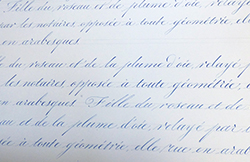 Fille du roseau et de plume d'oie, relayé
par les notaires opposée à toute géométrie, elle
en arabesques
du roseau et de la plume d'oie, relayé par
les notaires opposée à toute géométrie, elle
en arabesques Fille du roseau et de
au et de la plume d'oie, relayé par
sée à toute géométrie, elle rue en arab